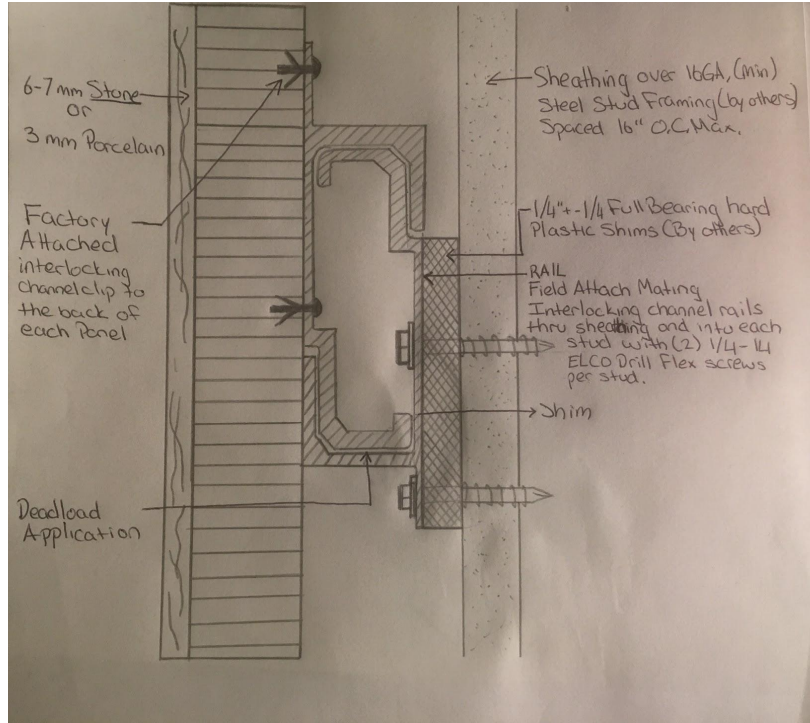 6-7 mm Stone
or
3 mm Porcelain
Factory
Attached
interlocking
channelclip to
the back of
each Panel
Deadload
Application
Sheathing over 16GA, (min)
Steel Stud Framing (by others)
Spaced 16" O.C. Max.
1/4"+-1/4 Full Bearing hard
Plastic Shims (By others)
RAIL
Field Attach Mating
Interlocking channel rails
thru sheathing and into each
stud with (2) 1/4-14
ELCO Drill Flex screws
per stud.
Shim